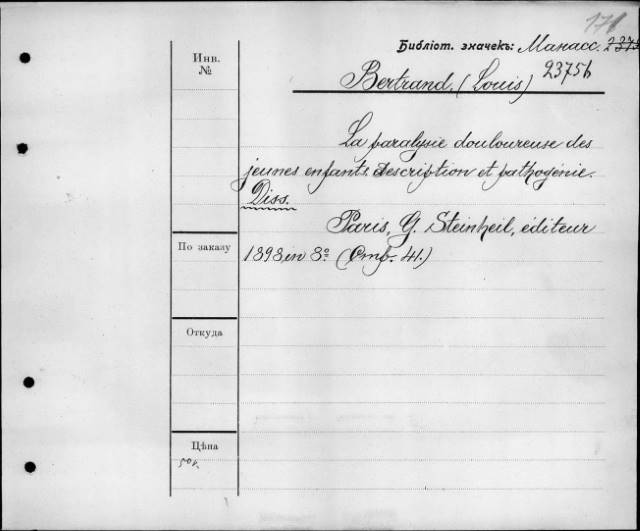 171
Библіот. значекъ: Манасс. 2375
Инв.
№
23756
Bertrand. (Louis)
La paralysie douloureuse des
jeunes enfants. description et pathogénie.
Diss.
Paris, G. Steinheil, editeur
По заказу
1898, in 8º (Стр. 41.)
Откуда
Цѣна
50 к.